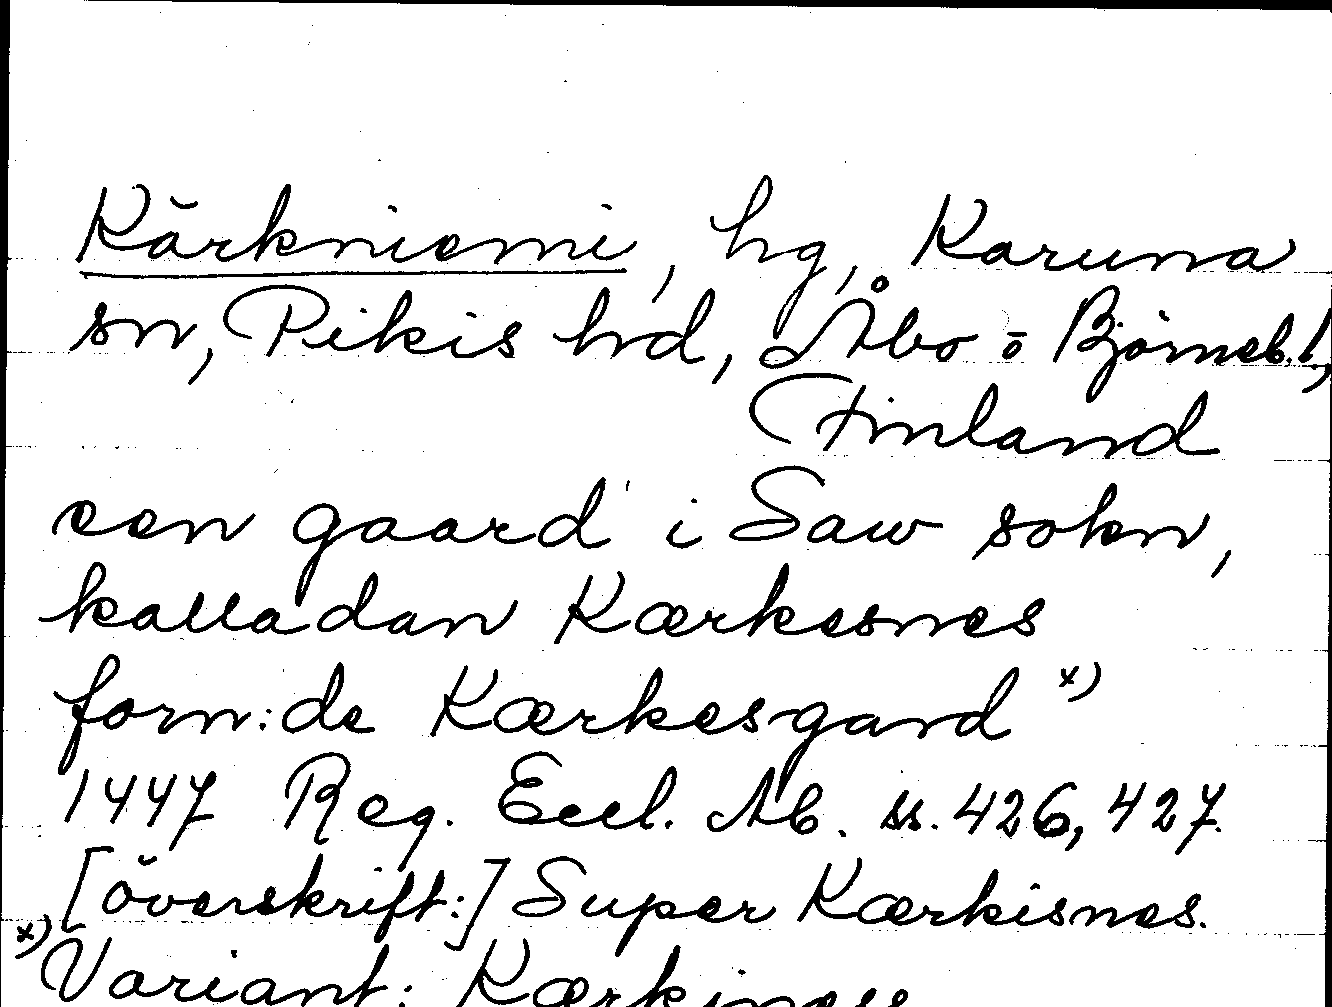 Kärkniemi, hg, Karuna
sn, Pikis hd, Åbo o Björneb. l,
Finland
een gaard i Saw sokn,
kalladan Kærkesnes
forn:de Kærkesgard x)
1447 Reg. Eccl. Ab. ss. 426, 427.
[överskrift:] Super Kærkisnes.
x) Variant: Kærkiness